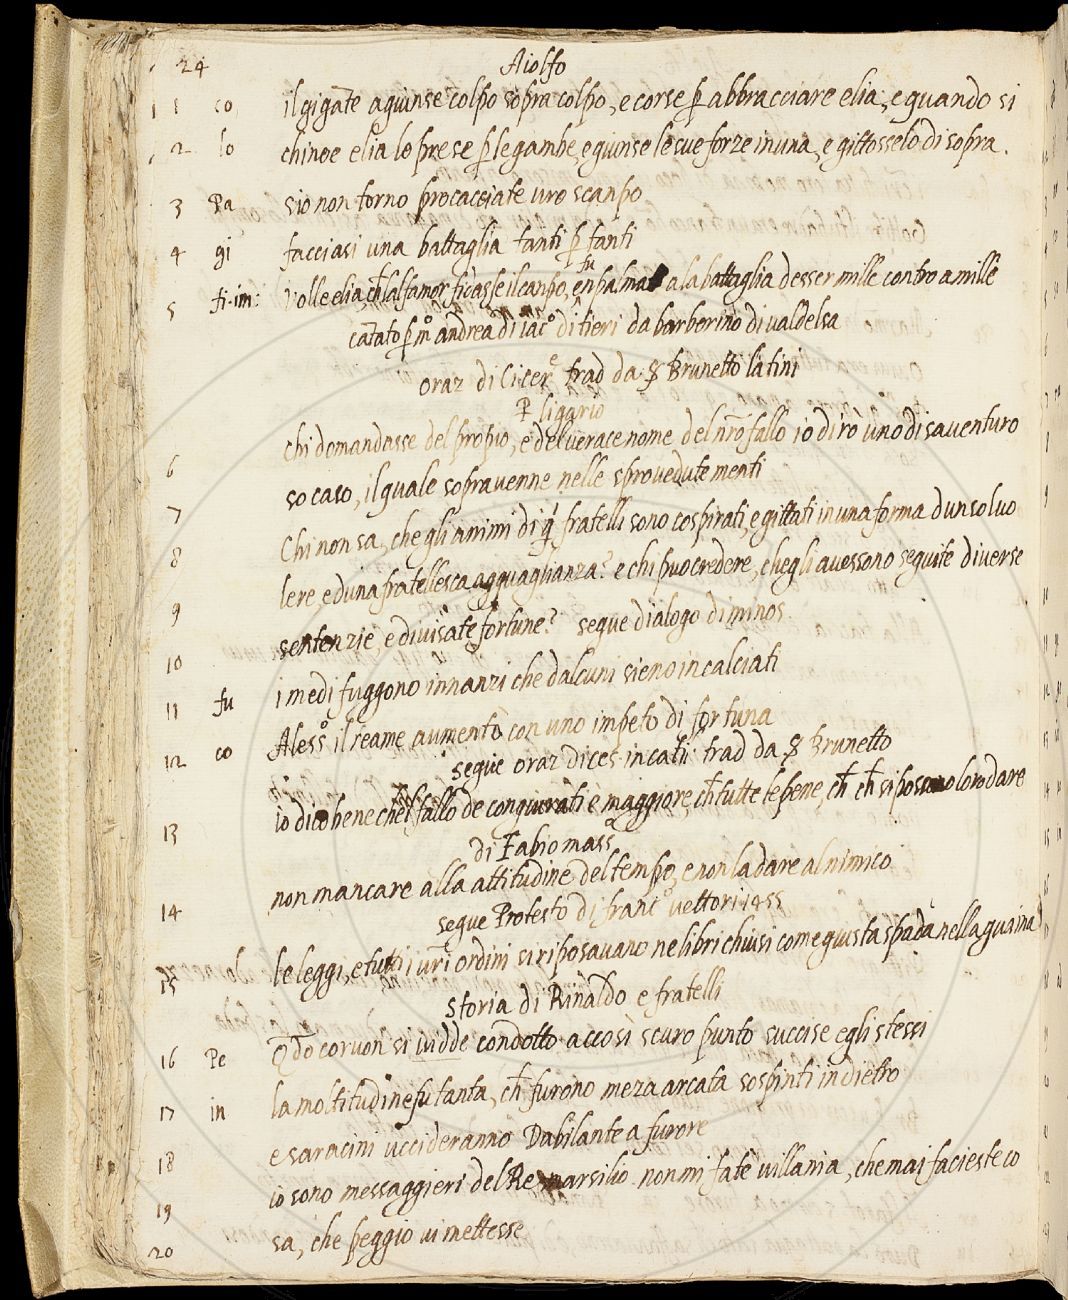 24 Aiolfo
1 co il gigãte agiunse colpo sopra colpo, e corse p̱ abbracciare elia, e quando si
2 lo chinoe elia lo prese p̱ legambe, egiunse lesue forze inuna, e gittosselo di sopra.
3 Pa sio non torno procacciate uro scanpo
4 gi facciasi una battaglia tanti p̱ tanti
fu
5 fi. im: Volle elia, ch̃ salfamor ficasse il canpo, en pa ala battaglia desser mille contro amille
catato p̱ mº andrea di iacº di tieri da barberino di valdelsa
oraz di Cicer͡e trad da S Brunetto latini
P̱ ligario
chi domandasse del propio, e del verace nome del nr̃o fallo io diro uno disauenturo
6 so caso, il quale soprauenne nelle sprouedute menti
7 Chi non sa, che gli animi di q̃ fratelli sono cospirati, e gittati in una forma dun solvo
8 lere, e duna fratellesca agguaglianza? e chi puo credere, chegli auessono seguite diuerse
9 sentenzie, e diuisate fortune? segue dialogo di minos
10 i medi fuggono innanzi che dalcuni sieno incalciati
11 fu Alessº il reame aumento con uno inpeto di fortuna
12 co segue oraz di ces. in catil: trad da S Brunetto
io dico bene chel fallo de congiurati e maggiore, ch̃ tutte le pene, ch̃ ch̃ si possano loro dare
13 di Fabio mass
non mancare alla attitudine del tempo, e non la dare al nimico
14 segue Protesto di francº uettori 1455
le leggi, e tutti i uri ordini si riposauano ne libri chiusi come giusta spada nella guaina
15 Storia di Rinaldo e fratelli
16 Pe Qdo coruon si uidde condotto accosi scuro punto succise egli stessi
17 in la moltitudine fu tanta, ch̃ furono meza arcata sospinti indietro
18 e saracini uccideranno Dabilante a furore
19 io sono messaggieri del Re marsilio. non mi fate uillania, che mai facieste co
20 sa, che peggio ui mettesse